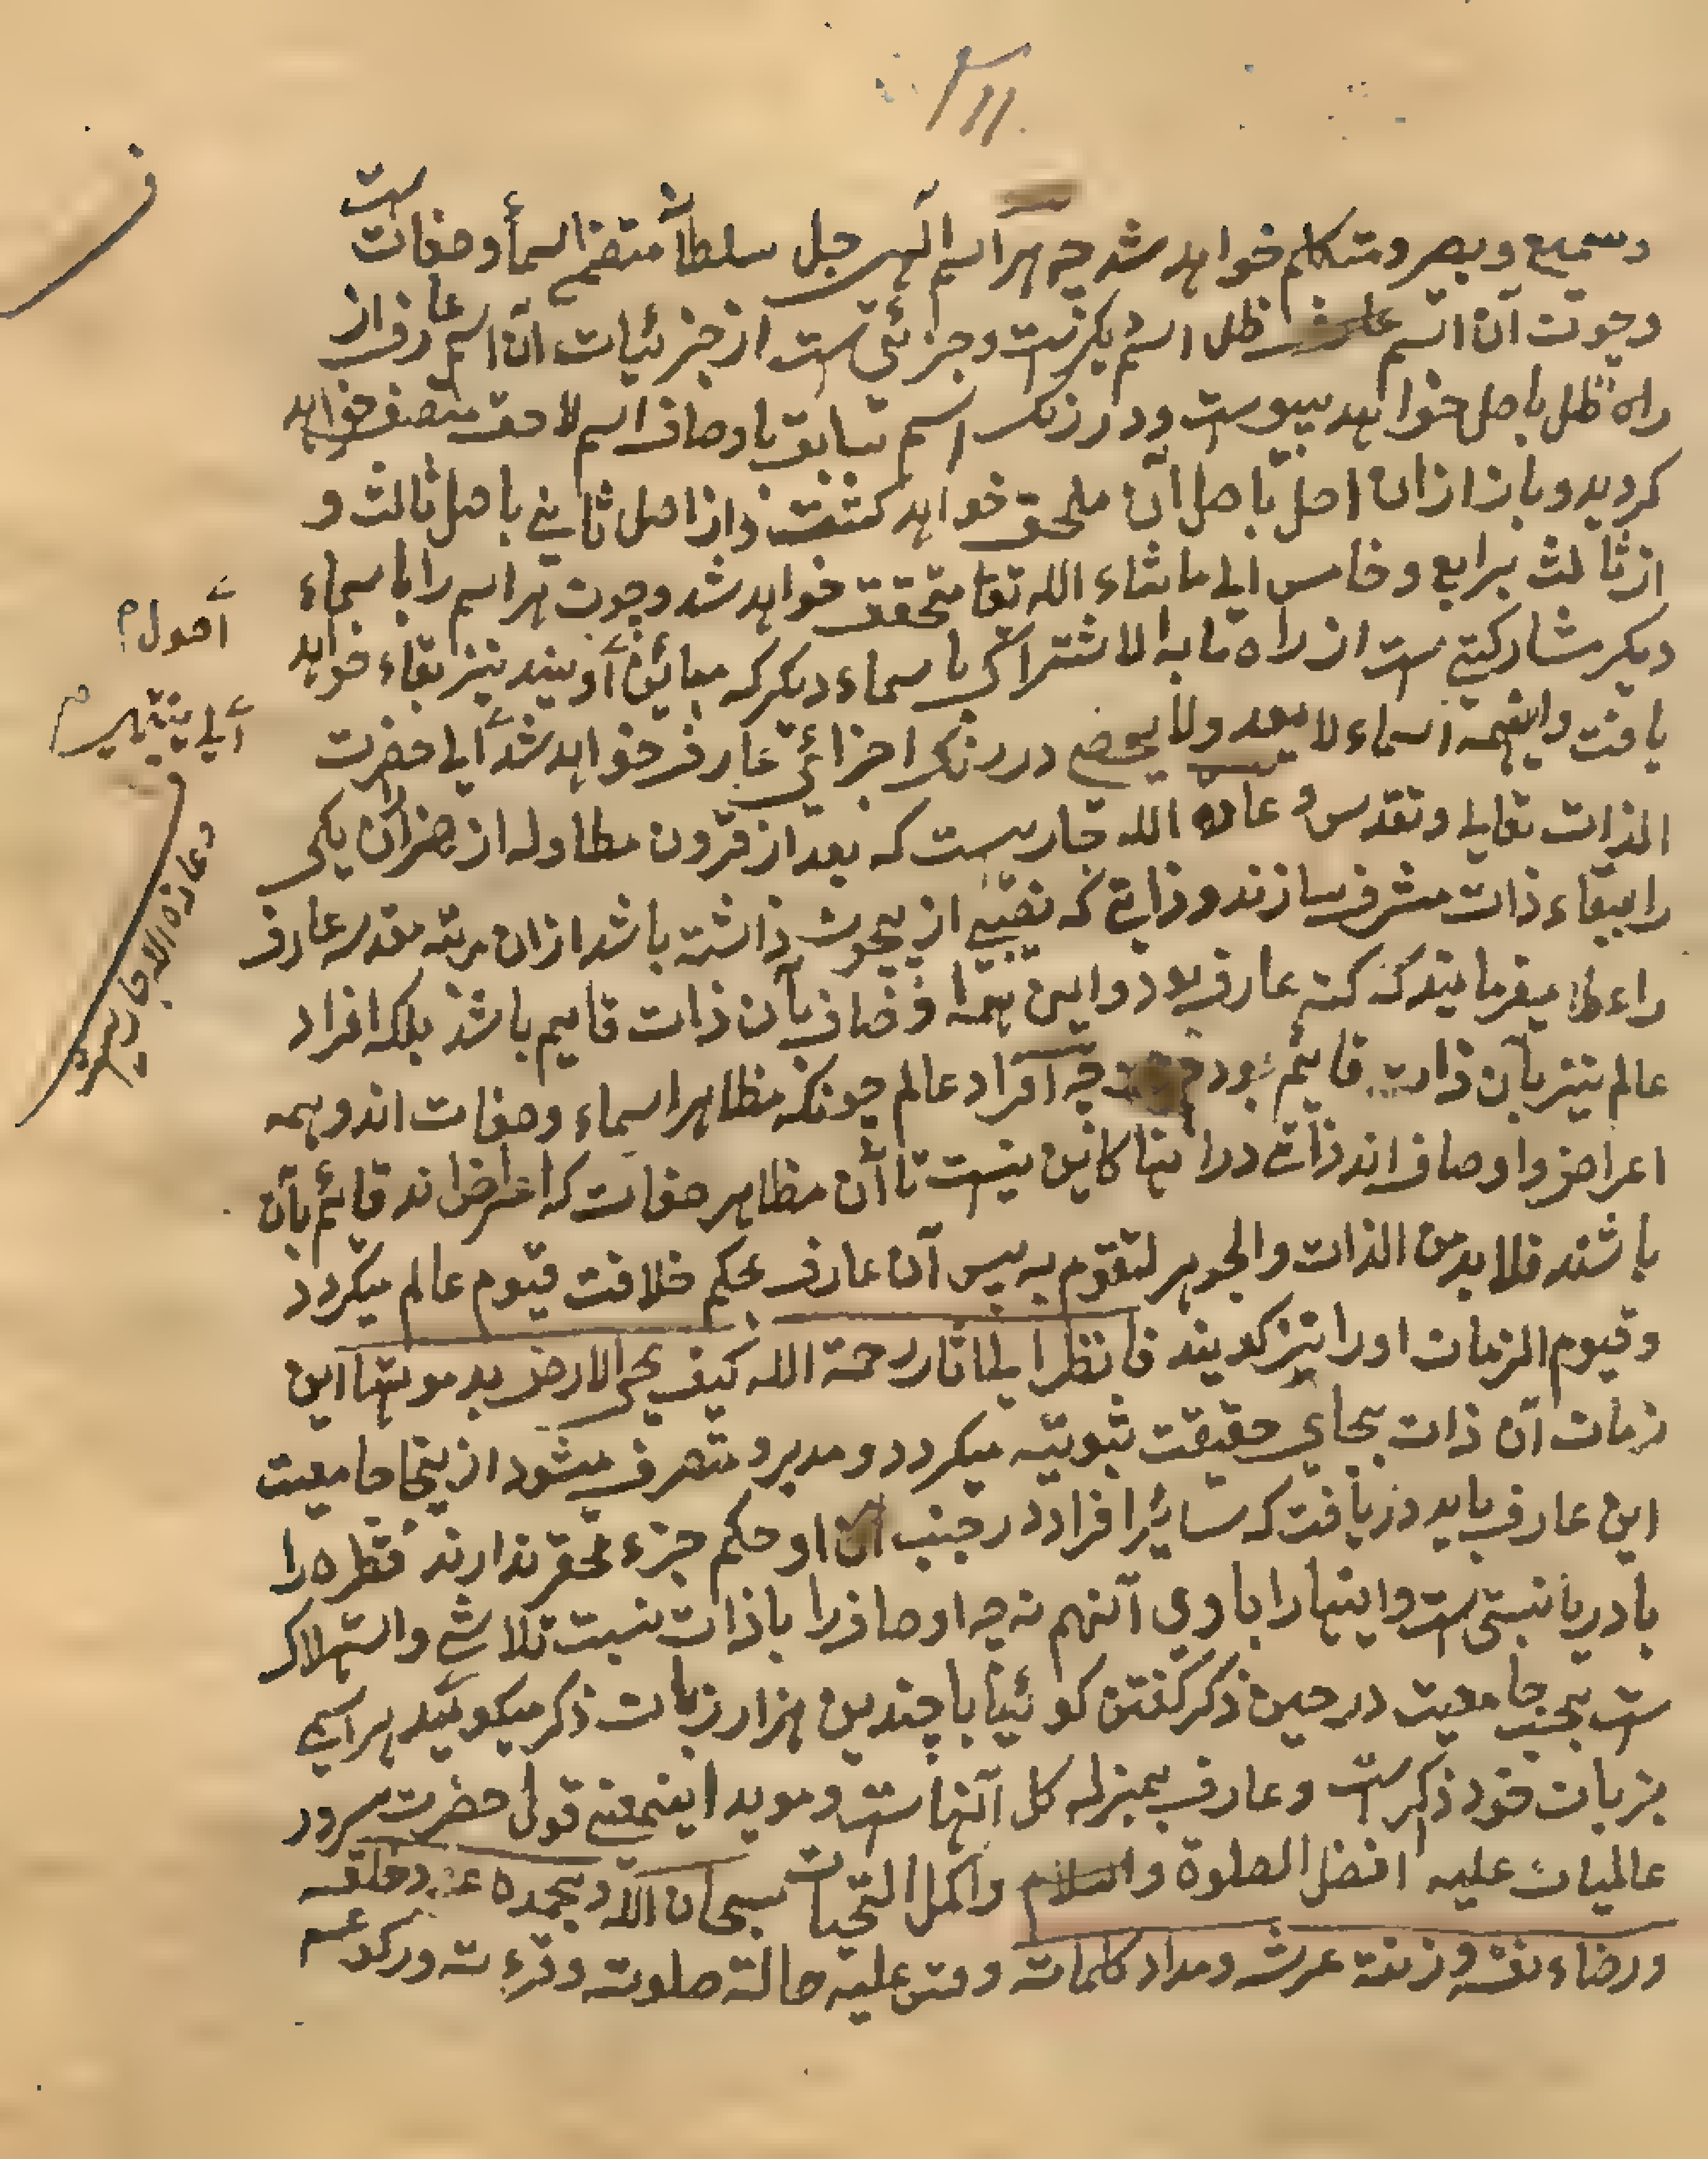 وسمیع و بصیر و متکلم خواهد شد چه هر اسم الهی جل سلطانه متضمن اسما و صفات ست
و چون آن اسم ظل اسم دیگرست و جزئی ست از جزئیات آن اسم عارف از
راه ظل باصل خواهد پیوست و در رنگ اسم سابق باوصاف اسم لاحق متصف خواهد
گردید و باز ازان اصل باصل آن ملحق خواهد گشت و از اصل ثانی باصل ثالث و
از ثالث برابع و خامس الی ما شاء الله تعا متحقق خواهد شد و چون هر اسم را با سماء
دیگر مشارکتی ست از راه ما به الاشتراک با سماء دیگر که مبائن اویند نیز بقاء خواهد
یافت و اینهمه اسماء لا یعد ولا یحصی در رنگ اجزائی عارف خواهد شد الی حضرت
الذات تعالی و تقدس و عادة الله جاریست که بعد از قرون متطاوله از هزاران یکی
را ببقاء ذات مشرف سازند و ذاتی که نصیبی از بیچون داشته باشد ازان مرتبه مقدسه عارف
را عطا میفرمایند که کنه عارف بود و این همه اوصاف بآن ذات قایم باشد بلکه افراد
عالم نیز بآن ذات قائم بود چه افراد عالم چونکه مظاهر اسماء و صفات اند و همه
اعراض و اوصاف اند ذاتی در اینها کاین نیست تا آن مظاهر صفات که اعراض اند قائم بآن
باشند فلا بد من الذات والجوهر لتقوم به پس آن عارف بحکم خلافت قیوم عالم میگردد
و قیوم الزمان او را نیز گویند فانظر الی اثار رحمة الله کیف یحی الارض بعد موتها این
زمان آن ذات بجای حقیقت ثبوتیه میگردد و مدبر و متصرف میشود ازینجا جامعیت
این عارف باید دریافت که سایر افراد در جنب او حکم جزء محقر ندارند قطره را
با دریا نسبتی ست و اینها را با وی آنهم نه چه اوصاف را با ذات نسبت تلاشی و استهلاک
ست بحسب جامعیت در حین ذکر گفتن گوئیا با چندین هزار زبان ذکر میگوید هر اسمی
بزبان خود ذکرست و عارف بمنزله کل آنهاست و موید اینمعنی قول حضرت سرور
عالمیان علیه افضل الصلوة والسلام و اکمل التحیات سبحان الله وبحمده عدد خلقه
ورضاء نفسه وزنة عرشه ومداد کلماته و قس علیه حالة صلوته و قرءته و رکوعه
اصول م
الی ینتهی م
و عادة الله جاریست